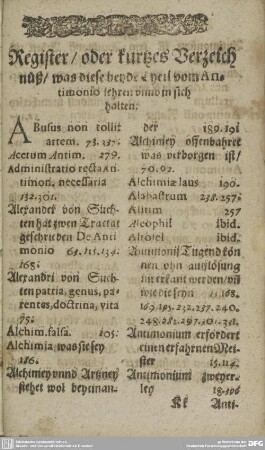 Register / oder kurtzes Verzeich
nüß / was diese beyde Theil vom An-
timonio lehren vnnd in sich
halten.
ABusus non tollit
artem. 73. 237.
Acetum Antim. 279.
Administratio recta An
timon. necessaria
132. 301.
Alexander von Such-
ten hat zwen Tractat
geschrieben De Anti
monio
168.
Alexandri von Such
ten patria, genus, pa-
rentes, doctrina, vita
75.
Alchim. falsa. 105.
Alchimia, was sie sey
186.
Alchimey vnnd Artzney
stehet wol beyeinan-
der 189. 191
Alchimey offenbahret
was verborgen ist /
70. 92.
Alchimiæ laus 190.
Alabastrum 238. 257.
Alum 257
Aleophil ibid.
Alkosel ibid.
Antimonii Tugend kön
nen ohn aufflösung
nit erkant werden / vñ
wie die seyn
169. 195. 232. 237. 240.
248. 281. 297. 301.
Antimonium erfordert
einen erfahrnen Mei-
ster 15. 114.
Antimonium zweyer-
ley 18. 196
Kk Anti-